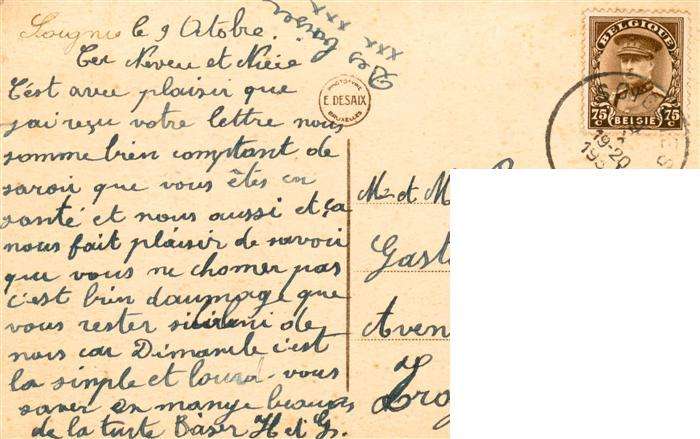 Soignies le 9 Octobre.
Cer Neveu et Nièce
C'est avec plaisir que
j'ai reçu votre lettre nous
somme bien comptant de
savoir que vous êtes en
santé et nous aussi et ça
nous fait plaisir de savoir
que vous ne chomer pas
c'est bien daumage que
vous rester si de
nous car Dimanche c'est
la sinple et lound vous
saver on mange beaucous
de la tarte Baser H et G.
Des baiser
xxx xxx
PHOTOTYPIE
E. DESAIX
BRUXELLES
BELGIQUE
75 c 75 c
BELGIË
19-20
193
Mr et M
Gast
Aven